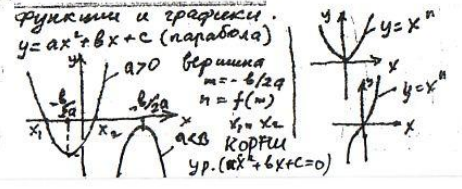 Функции и графики.
y=ax²+bx+c (парабола)
y
a>0
вершина
m=-b/2a
n=f(m)
-b/2a
-b/2a
x
x₁
x₂
x₁, x₂
a<0
корни
ур. (ax²+bx+c=0)
y
y=xⁿ
x
y
y=xⁿ
x